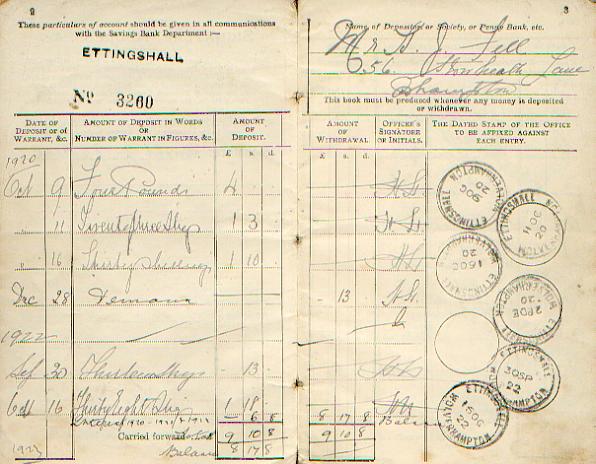 2
These particulars of account should be given in all communications
with the Savings Bank Department :—
ETTINGSHALL
No 3260
DATE OF DEPOSIT OR OF WARRANT, &C.
AMOUNT OF DEPOSIT IN WORDS OR NUMBER OF WARRANT IN FIGURES, &C.
AMOUNT OF DEPOSIT.
£ s. d.
1920
Oct 9 Four Pounds 4
" 11 Twentythree Shgs 1 3
" 16 Thirty shillings 1 10
Dec 28 Demand
1922
Sep 30 Thirteen Shgs 13
Oct 16 Thirty Eight Shgs 1 18
Interest 1920-1921 6 8
Carried forward 9 10 8
1923 Balance 8 17 8
3
Name of Depositor or Society, or Penny Bank, etc.
Mr J. Fell
656 Lane
This book must be produced whenever any money is deposited
or withdrawn.
AMOUNT OF WITHDRAWAL.
OFFICER'S SIGNATURE OR INITIALS.
THE DATED STAMP OF THE OFFICE TO BE AFFIXED AGAINST EACH ENTRY.
£ s. d.
13
8 17 8 Balance
9 10 8
ETTINGSHALL WOLVERHAMPTON 9 OC 20
ETTINGSHALL WOLVERHAMPTON 11 OC 20
ETTINGSHALL WOLVERHAMPTON 16 OC 20
ETTINGSHALL WOLVERHAMPTON 28 DE 20
ETTINGSHALL WOLVERHAMPTON 30 SP 22
ETTINGSHALL WOLVERHAMPTON 16 OC 22